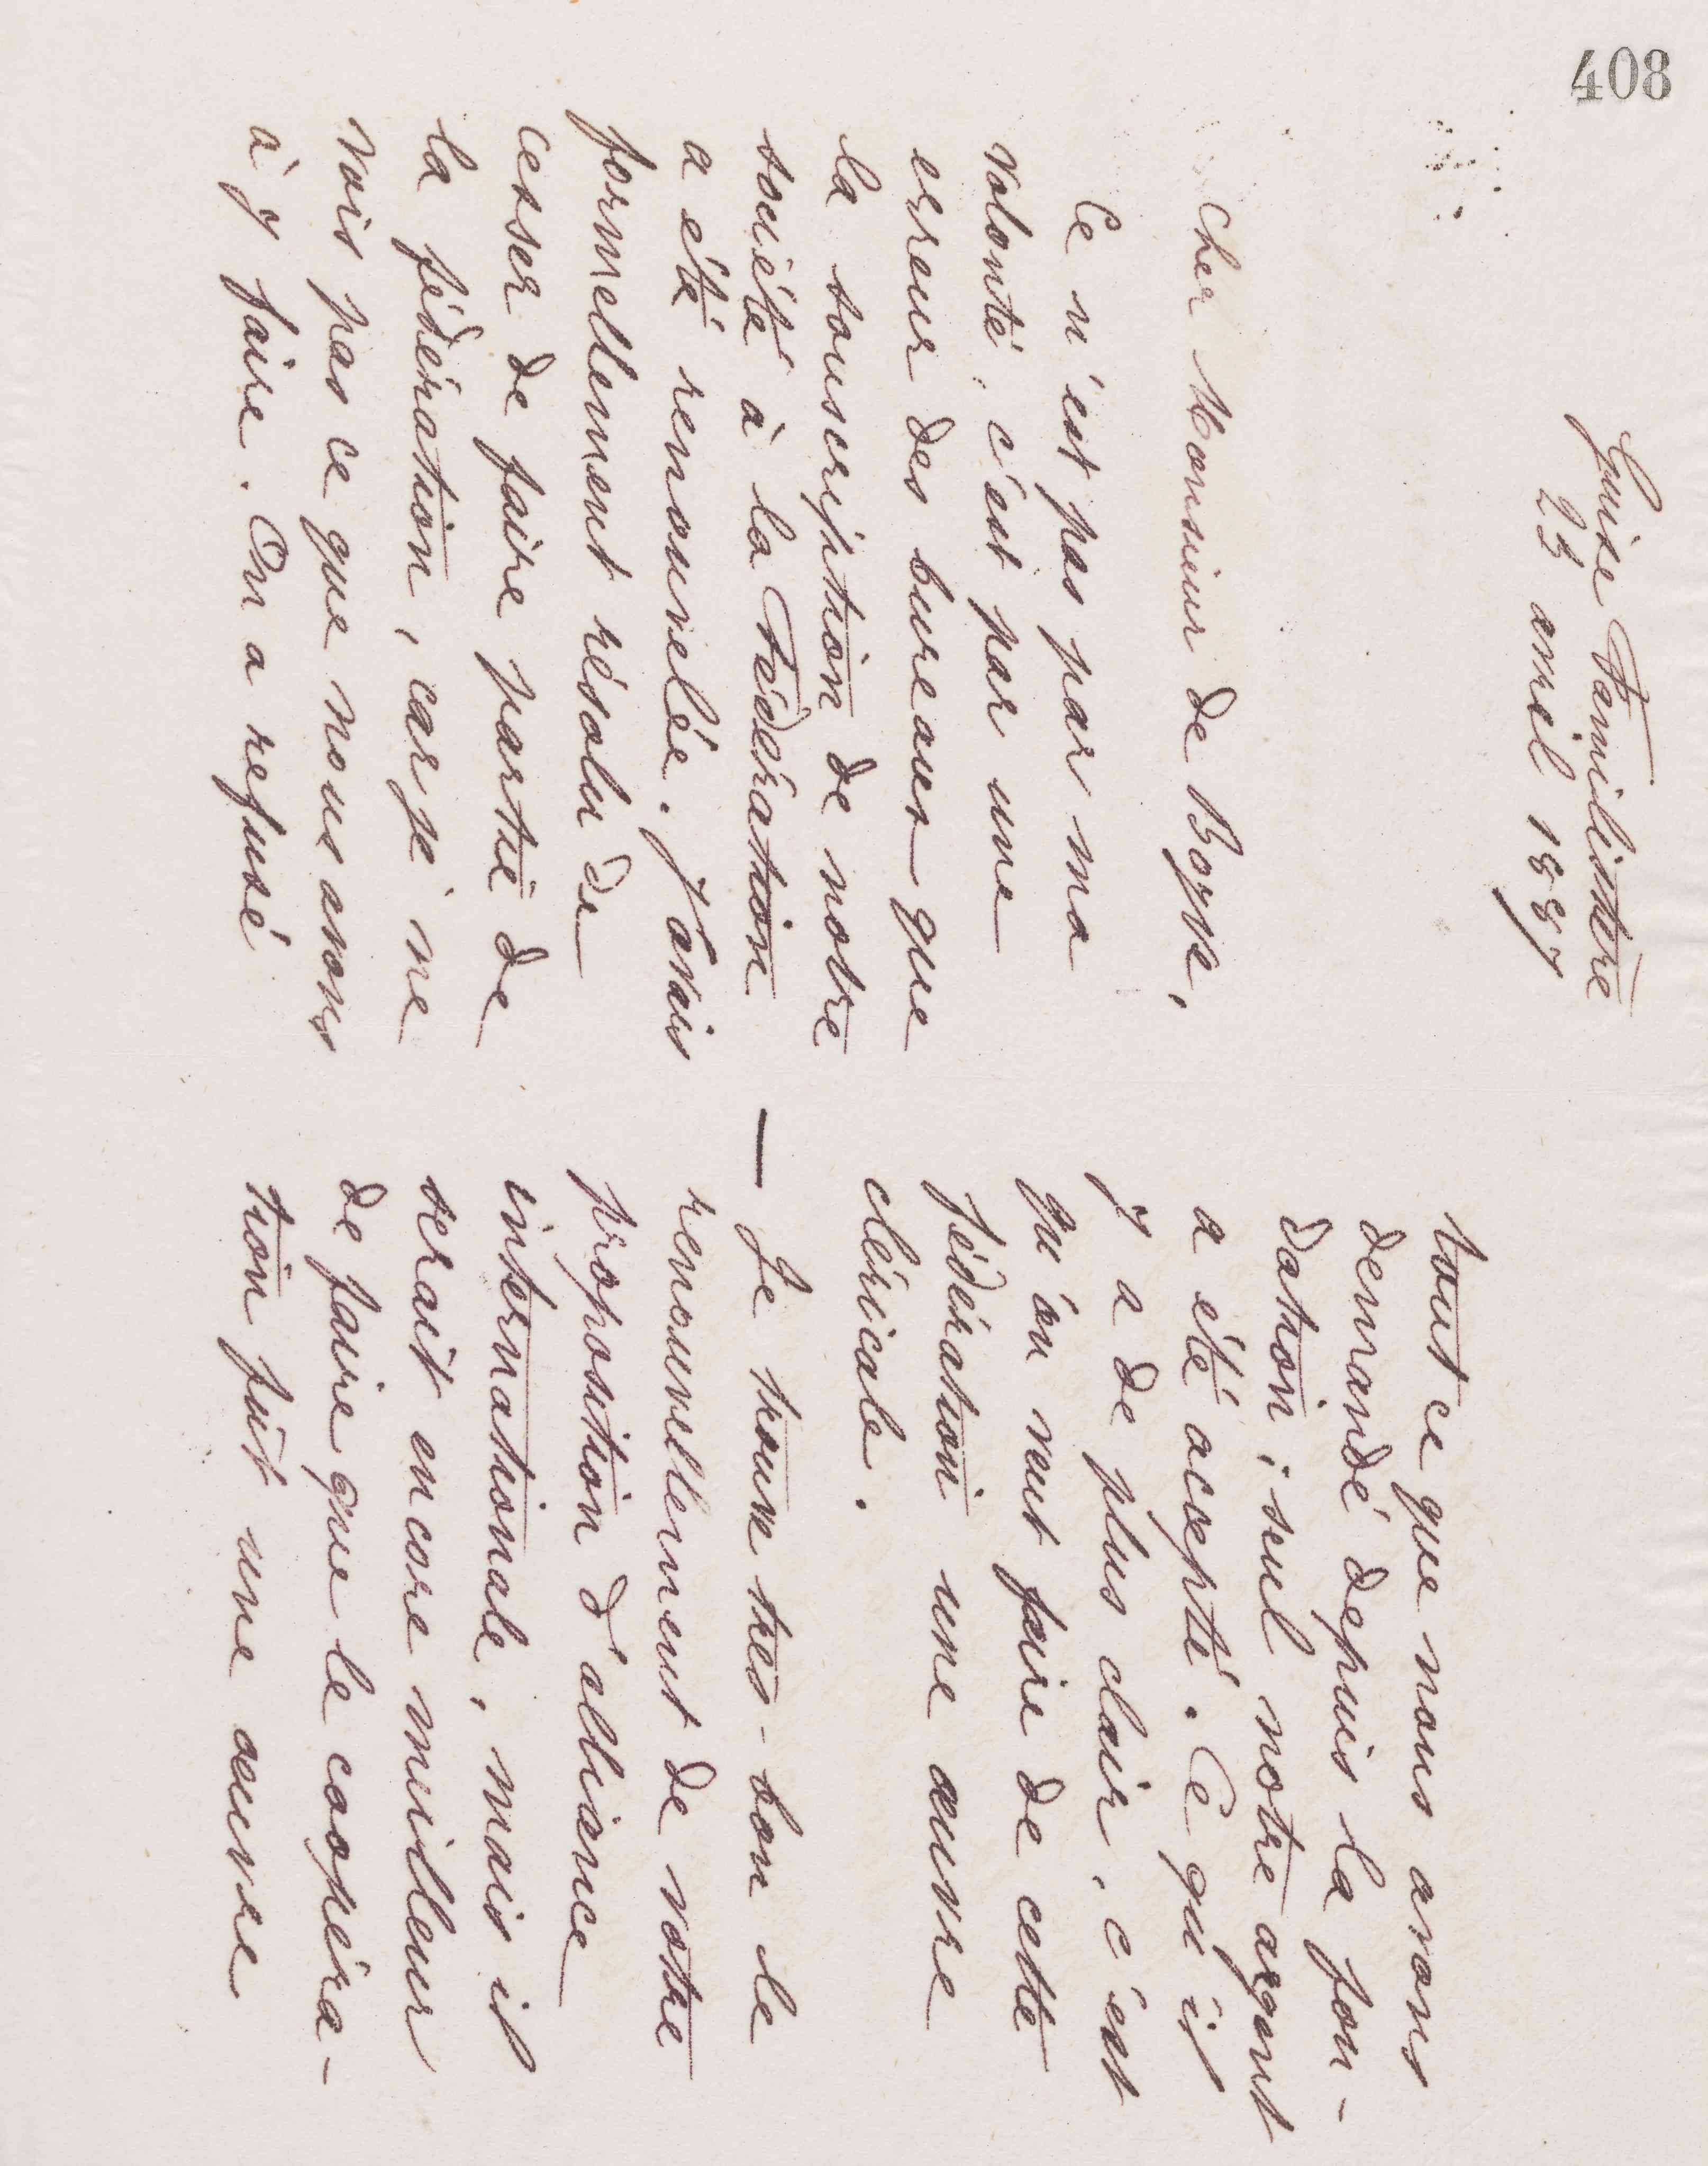 408
Guise Familistère
23 avril 1887
Cher Monsieur de Boyve,
Ce n'est pas par ma
volonté, c'est par une
erreur des bureaux que
la souscription de notre
société à la Fédération
a été renouvelée. J'avais
formellement résolu de
cesser de faire partie de
la fédération, car je ne
vois pas ce que nous avons
à y faire. On a refusé
tout ce que nous avons
demandé depuis la fon-
dation; seul notre argent
a été accepté. Ce qu'il
y a de plus clair, c'est
qu'on veut faire de cette
fédération une œuvre
cléricale.
— Je trouve très-bon le
renouvellement de votre
proposition d'alliance
internationale, mais il
serait encore meilleur
de faire que le coopéra-
tion fût une œuvre